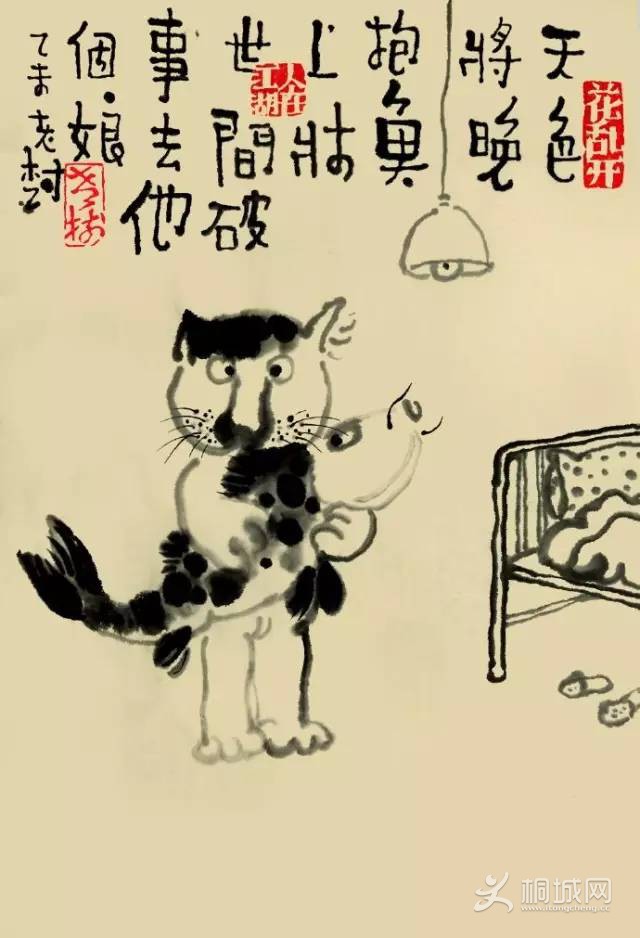 天色
將晚
抱魚
上牀
世間破
事去他
個娘
乙未老樹
花乱开
人在江湖
老樹
桐城网
www.itongcheng.cc